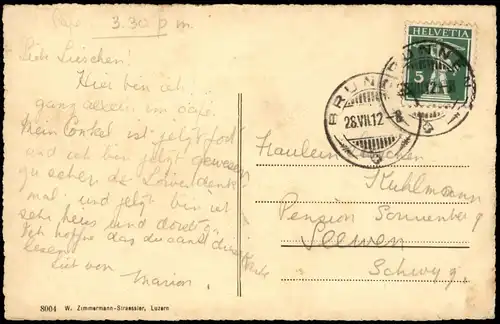 3.30 p m.
Liebe Lieschen!
Hier bin ich
ganz allein im Café.
Mein Onkel ist jetzt fort
und ich bin jetzt gewesen
zu sehen die Löwendenk
mal und jetzt bin ich
sehr heis und dorstig.
Ich hoffe das du canst diese Karte
lesen.
Lieb von Marion.
HELVETIA
5
BRUNNEN
28.VII.12-8
Fraulein
Kuhlmann
Pension Sonnenberg
Seewen
Schwyz.
8004 W. Zimmermann-Straessler, Luzern